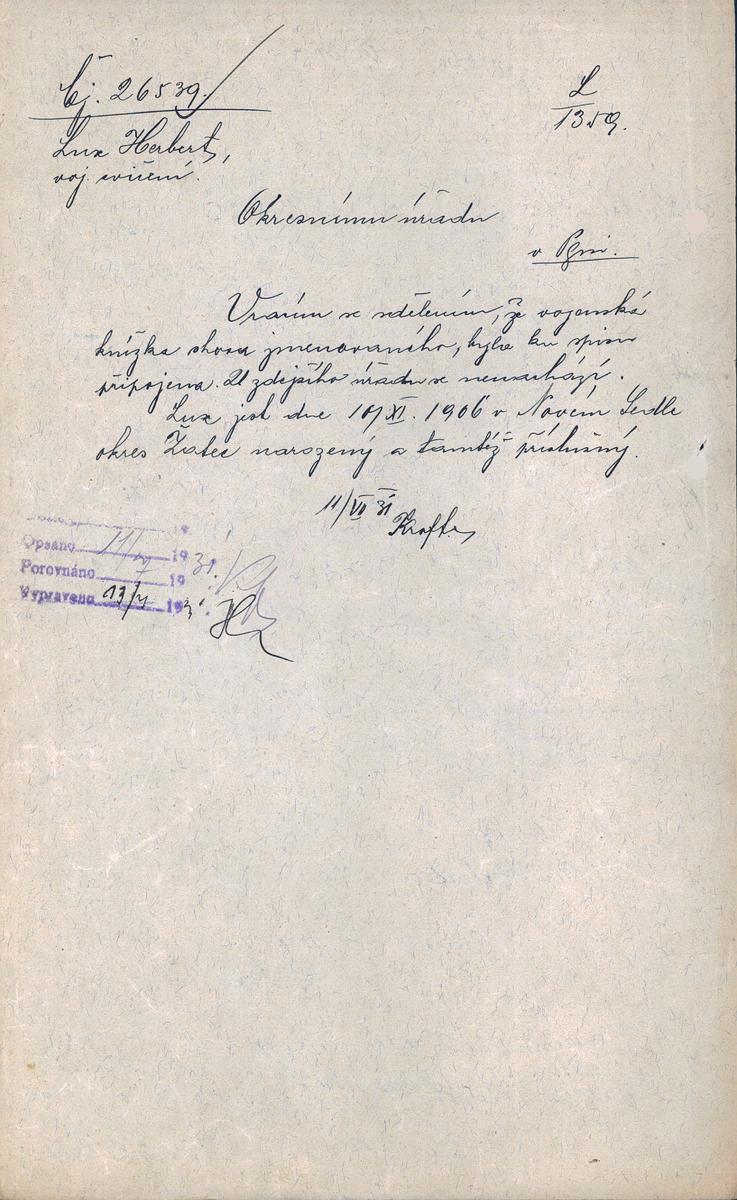 Čj. 26539.
L
1359.
Lux Herbert,
voj. cvičení.
Okresnímu úřadu
v
Vracím se sdělením, že vojenská
knížka shora jmenovaného, byla ku spisu
připojena. U zdejšího úřadu se nenachází.
Lux jest dne 10/XI. 1906 v Novém Sedle
okres Žatec narozený a tamtéž příslušný.
11/VII 31
Opsáno 11/7 1931.
Porovnáno 19
Vypraveno 13/7 193